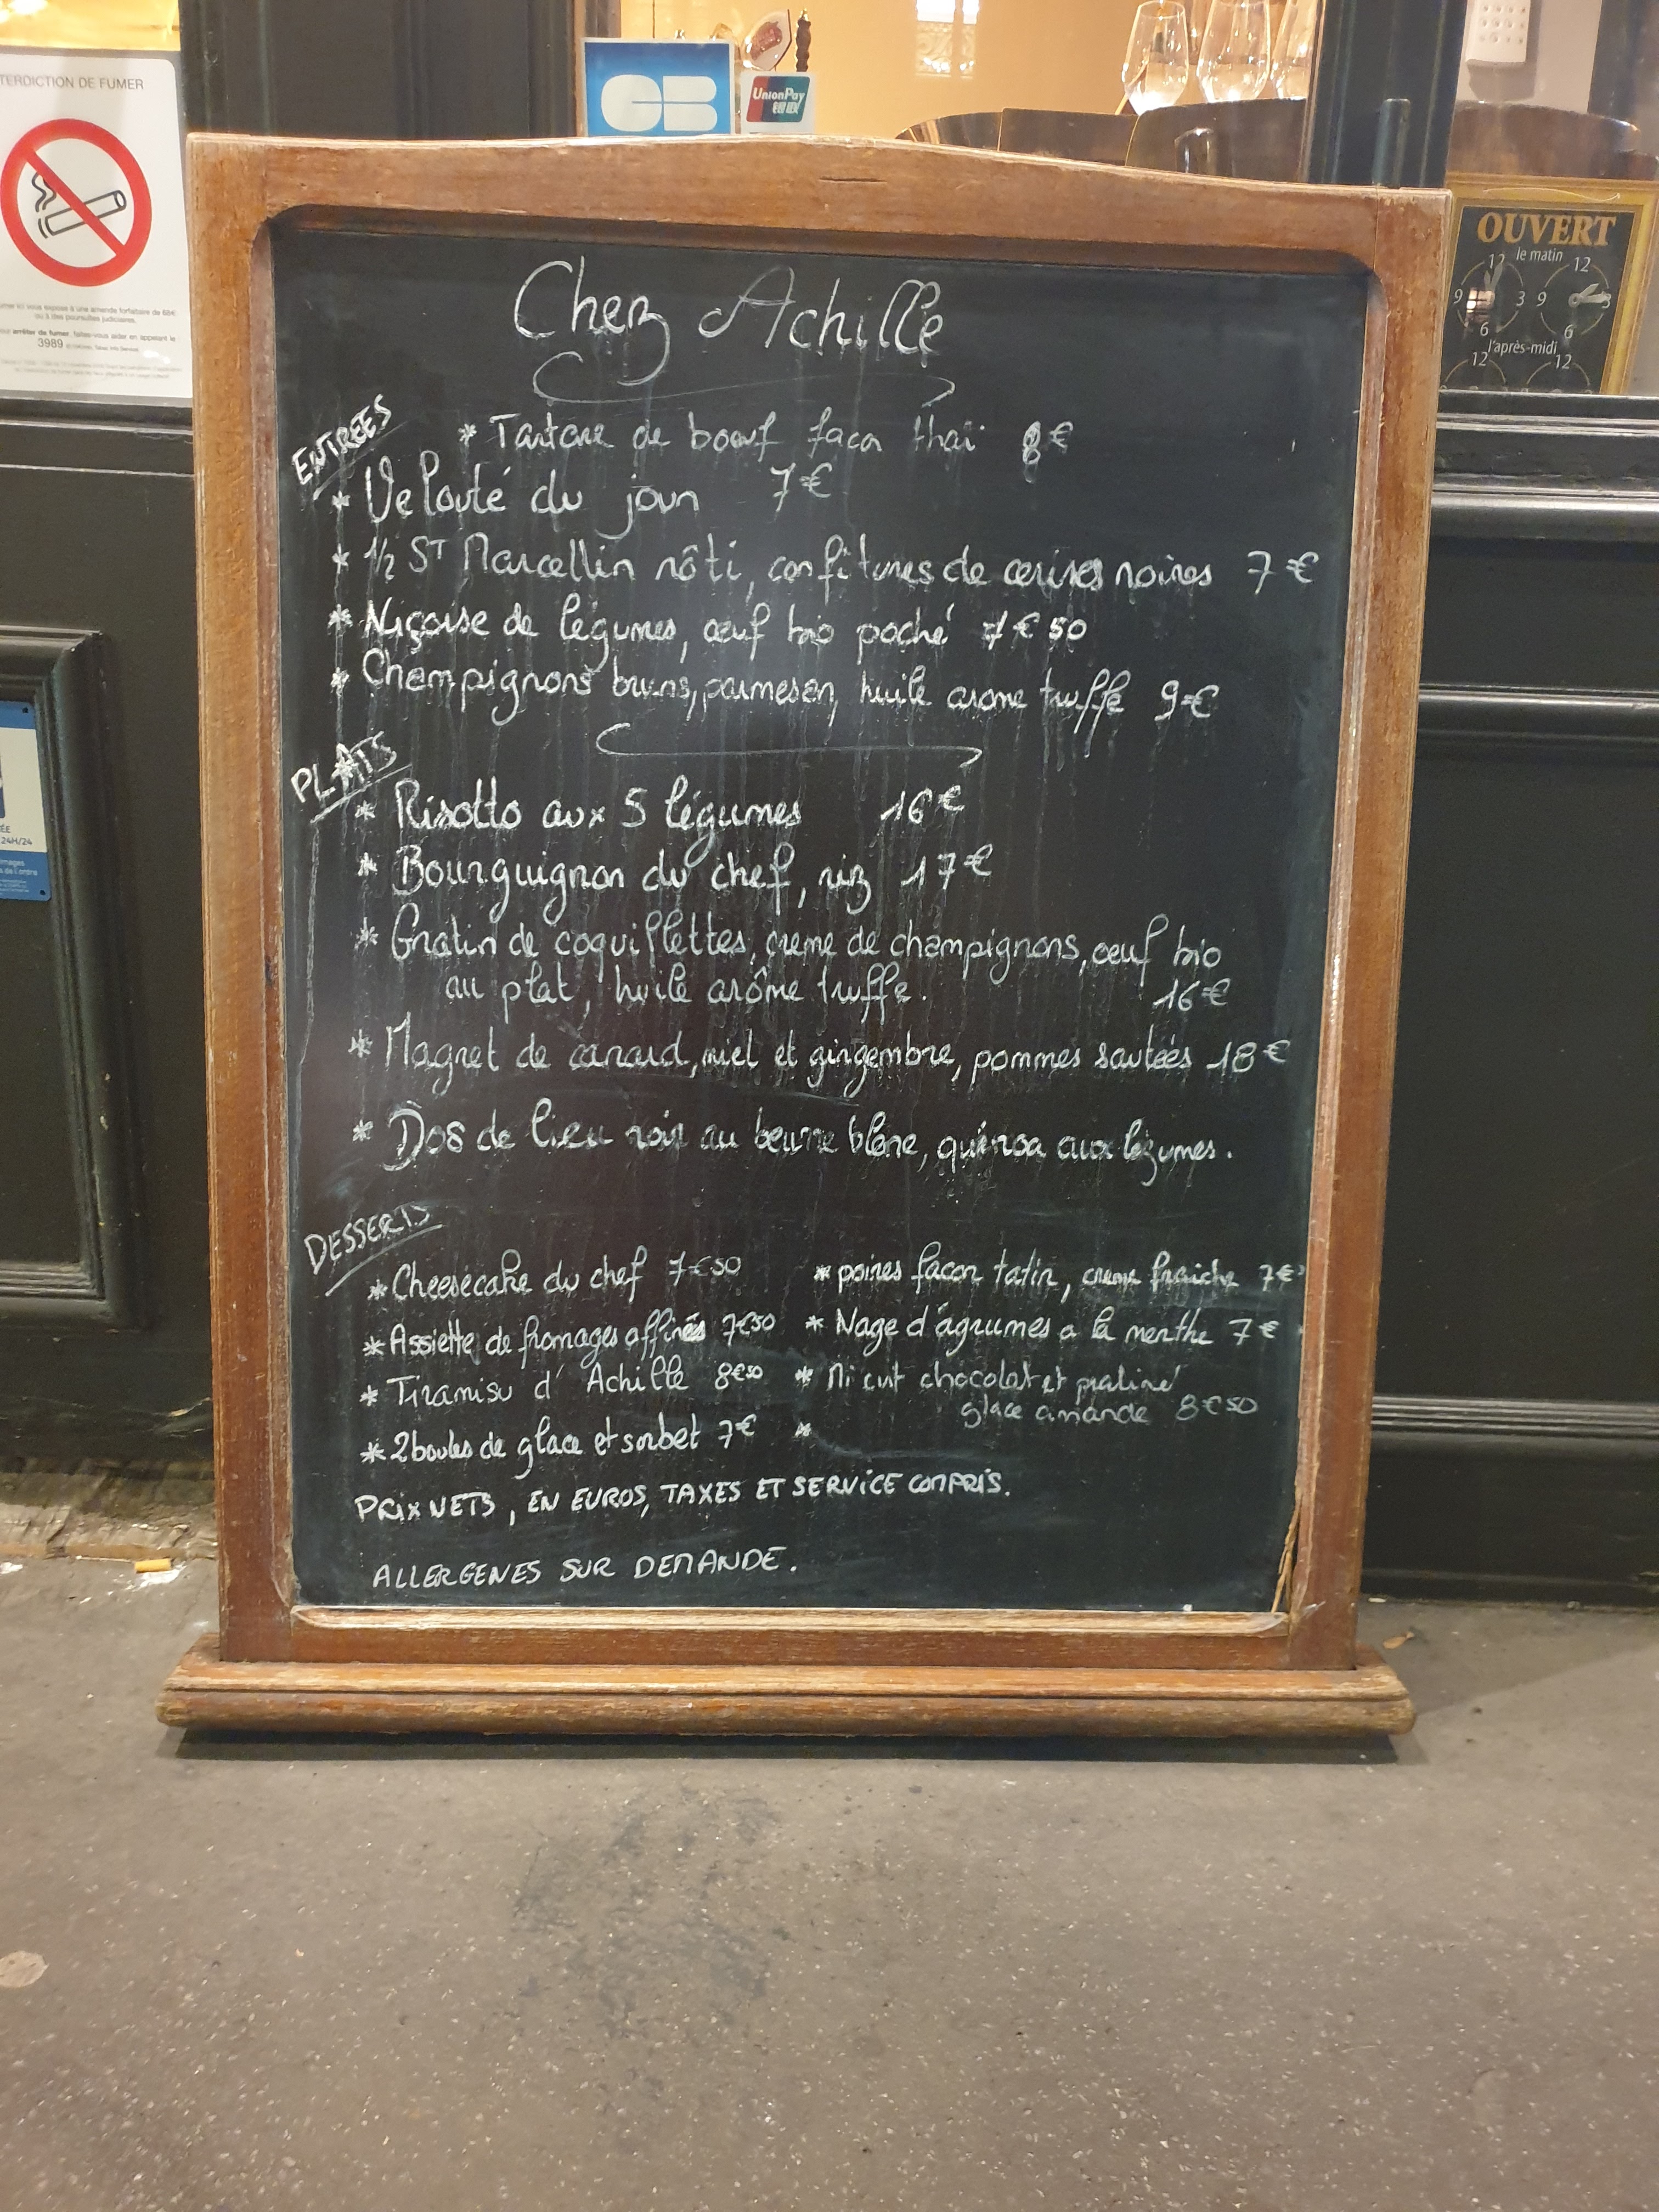 TERDICTION DE FUMER
3989
CB
UnionPay
OUVERT
le matin
12 12
9 3 9 3
6 6
l'après-midi
12 12
24H/24
Chez Achille
ENTREES
* Tartare de boeuf facon thaï 8€
* Velouté du jour 7€
* 1/2 ST Marcellin rôti, confitures de cerises noires 7€
* Niçoise de légumes, œuf bio poché 7€50
* Champignons bruns, parmesan, huile arome truffe 9€
PLATS
* Risotto aux 5 légumes 16€
* Bourguignon du chef, riz 17€
* Gratin de coquillettes, creme de champignons, œuf bio
au plat, huile arôme truffe. 16€
* Magret de canard, miel et gingembre, pommes sautées 18€
* Dos de lieu noir au beurre blanc, quinoa aux légumes.
DESSERTS
* Cheesecake du chef 7€50
* poires facon tatin, creme fraiche 7€
* Assiette de fromages affinés 7€50
* Nage d'agrumes a la menthe 7€
* Tiramisu d'Achille 8€50
* Mi cuit chocolat et praliné
glace amande 8€50
* 2 boules de glace et sorbet 7€
*
PRIX NETS, EN EUROS, TAXES ET SERVICE COMPRIS.
ALLERGENES SUR DEMANDE.